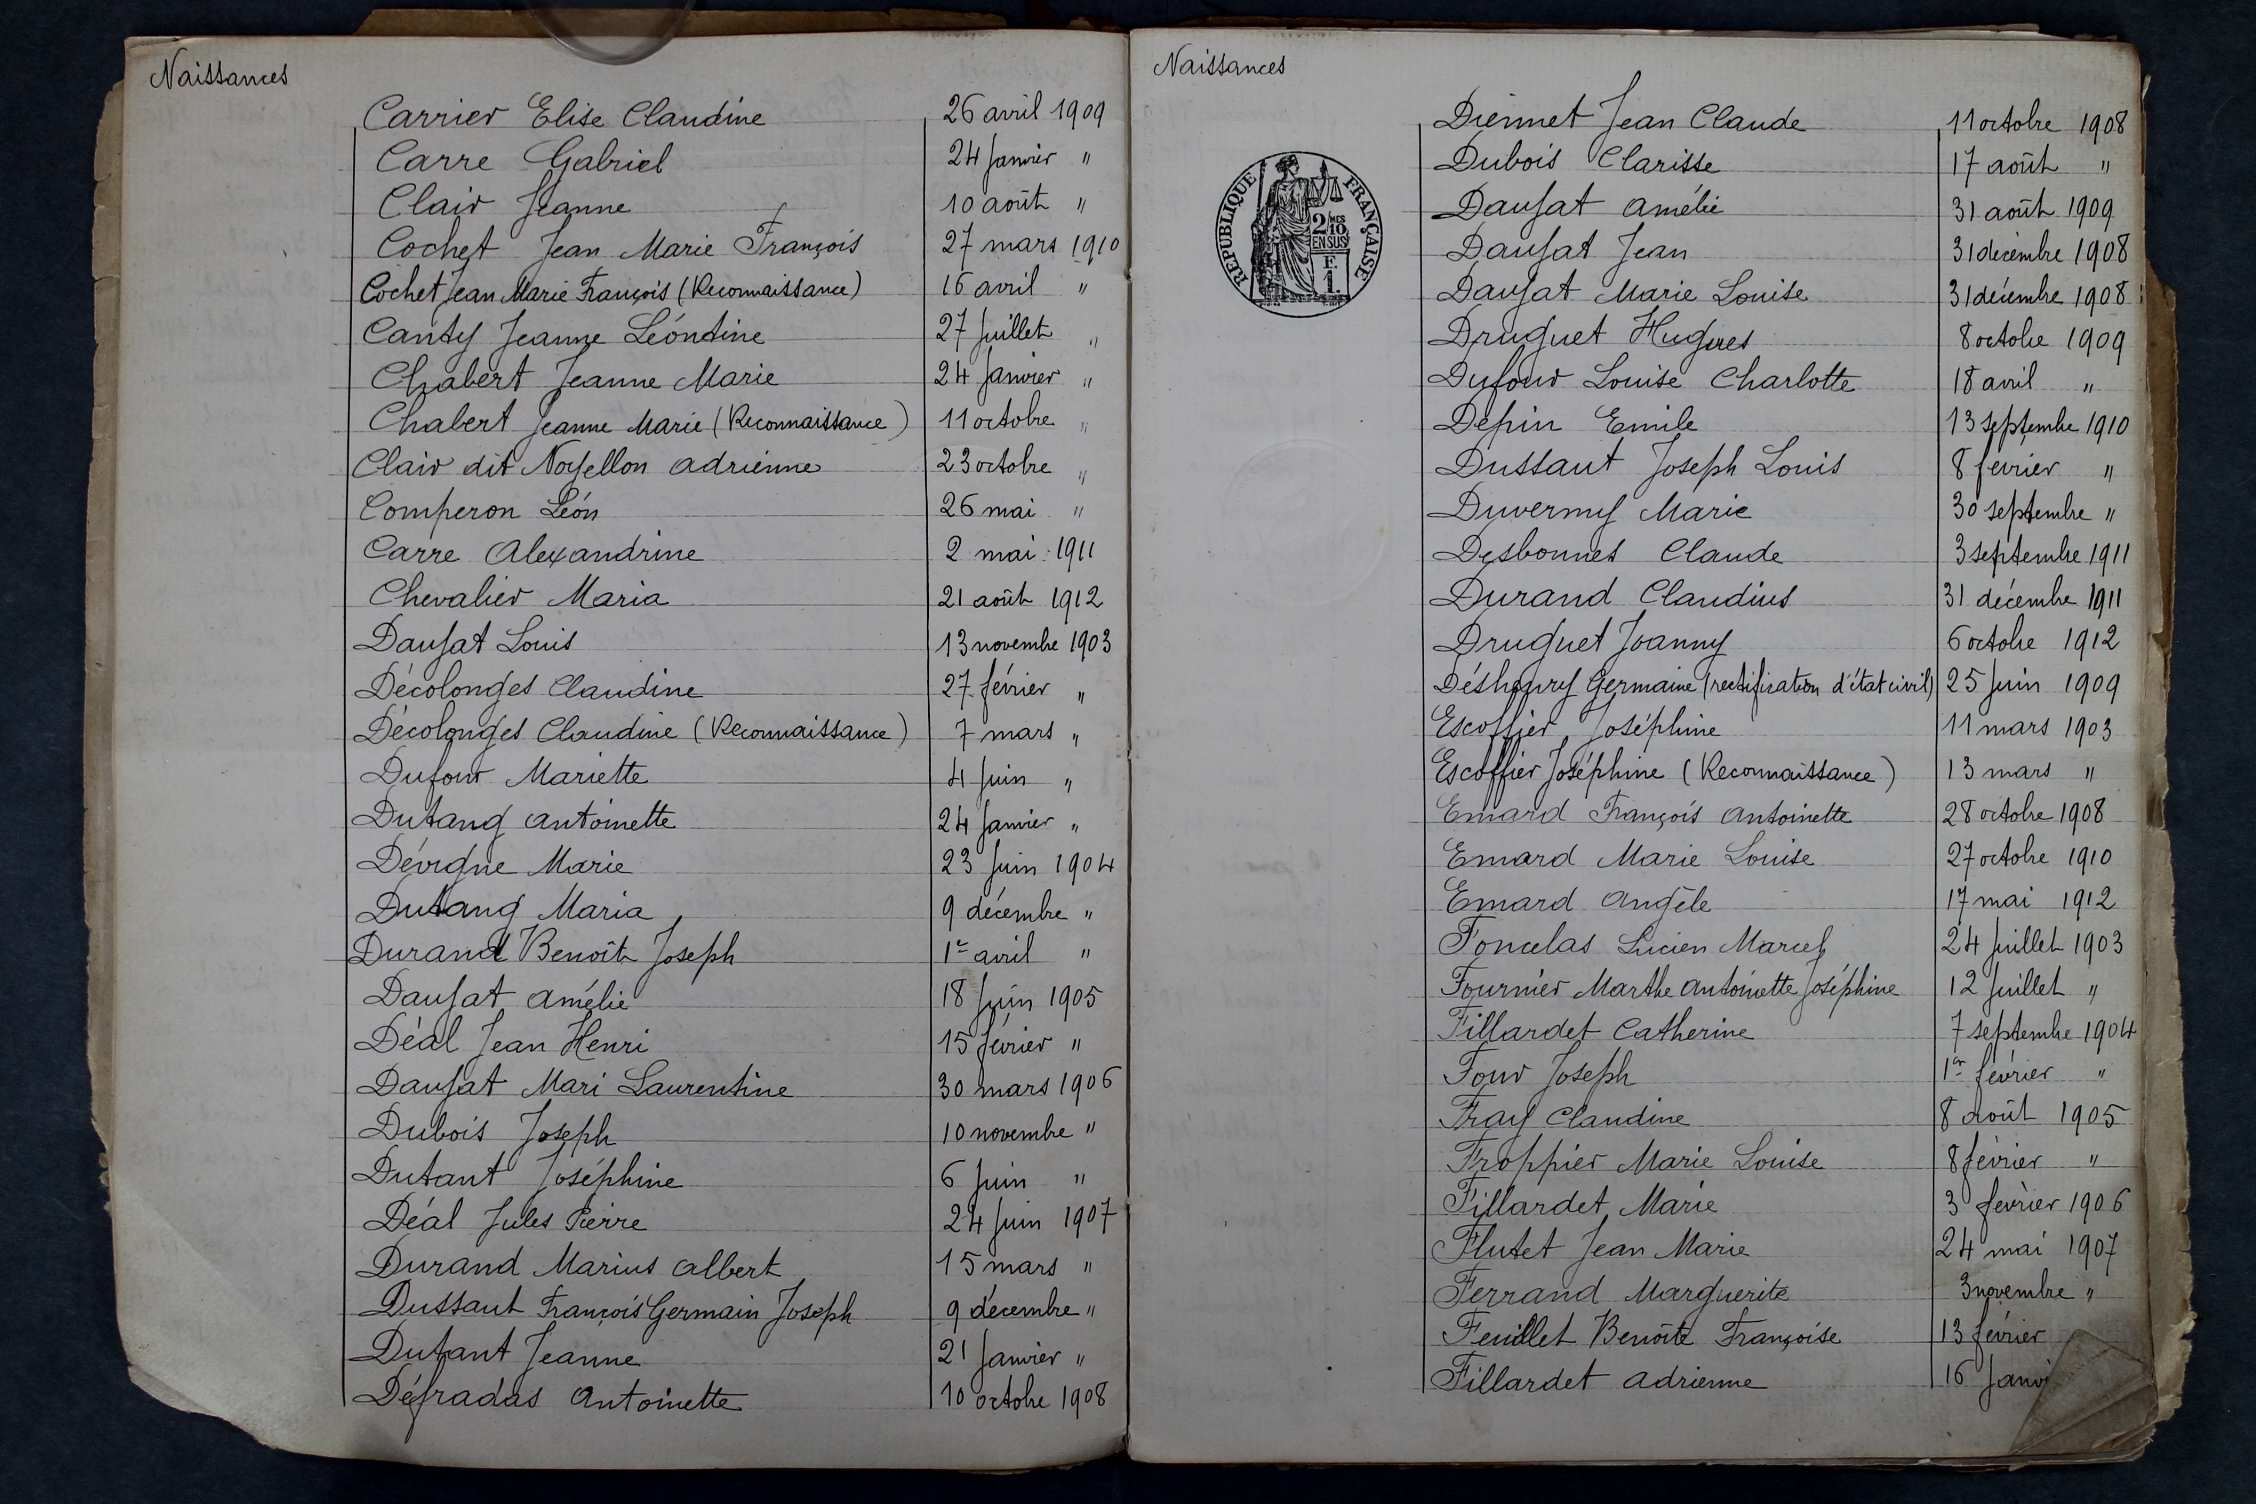 Naissances
Carrier Elise Claudine 26 avril 1909
Carre Gabriel 24 Janvier "
Clair Jeanne 10 août "
Cochet Jean Marie François 27 mars 1910
Cochet Jean Marie François (Reconnaissance) 16 avril "
Canty Jeanne Léontine 27 Juillet "
Chabert Jeanne Marie 24 Janvier "
Chabert Jeanne Marie (Reconnaissance) 11 octobre "
Clair dit Noyellon adrienne 23 octobre "
Comperon Léon 26 mai "
Carre Alexandrine 2 mai 1911
Chevalier Maria 21 août 1912
Daujat Louis 13 novembre 1903
Décolonges Claudine 27 février "
Décolonges Claudine (Reconnaissance) 7 mars "
Dufour Mariette 4 Juin "
Dutang antoinette 24 Janvier "
Dévigne Marie 23 Juin 1904
Dutang Maria 9 décembre "
Durand Benoît Joseph 1er avril "
Daujat amélie 18 Juin 1905
Déal Jean Henri 15 février "
Daujat Mari Laurentine 30 mars 1906
Dubois Joseph 10 novembre "
Dutant Joséphine 6 Juin "
Déal Jules Pierre 24 Juin 1907
Durand Marius albert 15 mars "
Dussaut François Germain Joseph 9 décembre "
Dutant Jeanne 21 Janvier "
Défradas antoinette 10 octobre 1908
Naissances
RÉPUBLIQUE FRANÇAISE
2/10 MES
EN SUS
F.
1.
Diennet Jean Claude 11 octobre 1908
Dubois Clarisse 17 août "
Daujat amélie 31 août 1909
Daujat Jean 31 décembre 1908
Daujat Marie Louise 31 décembre 1908
Druguet Hugues 8 octobre 1909
Dufour Louise Charlotte 18 avril "
Depin Emile 13 septembre 1910
Dussaut Joseph Louis 8 février "
Duverny Marie 30 septembre "
Desbonnes Claude 3 septembre 1911
Durand Claudius 31 décembre 1911
Druguet Joanny 6 octobre 1912
Déshoury Germaine (rectification d'état civil) 25 Juin 1909
Escoffier Joséphine 11 mars 1903
Escoffier Joséphine (Reconnaissance) 13 mars "
Emard François antoinette 28 octobre 1908
Emard Marie Louise 27 octobre 1910
Emard angèle 17 mai 1912
Foncelas Lucien Marcel 24 Juillet 1903
Fournier Marthe antoinette Joséphine 12 Juillet "
Fillardet Catherine 7 septembre 1904
Four Joseph 1er février "
Fray Claudine 8 août 1905
Froppier Marie Louise 8 février "
Fillardet Marie 3 février 1906
Flutet Jean Marie 24 mai 1907
Ferrand Marguerite 3 novembre "
Feuillet Benoîte Françoise 13 février
Fillardet adrienne 16 Janvi